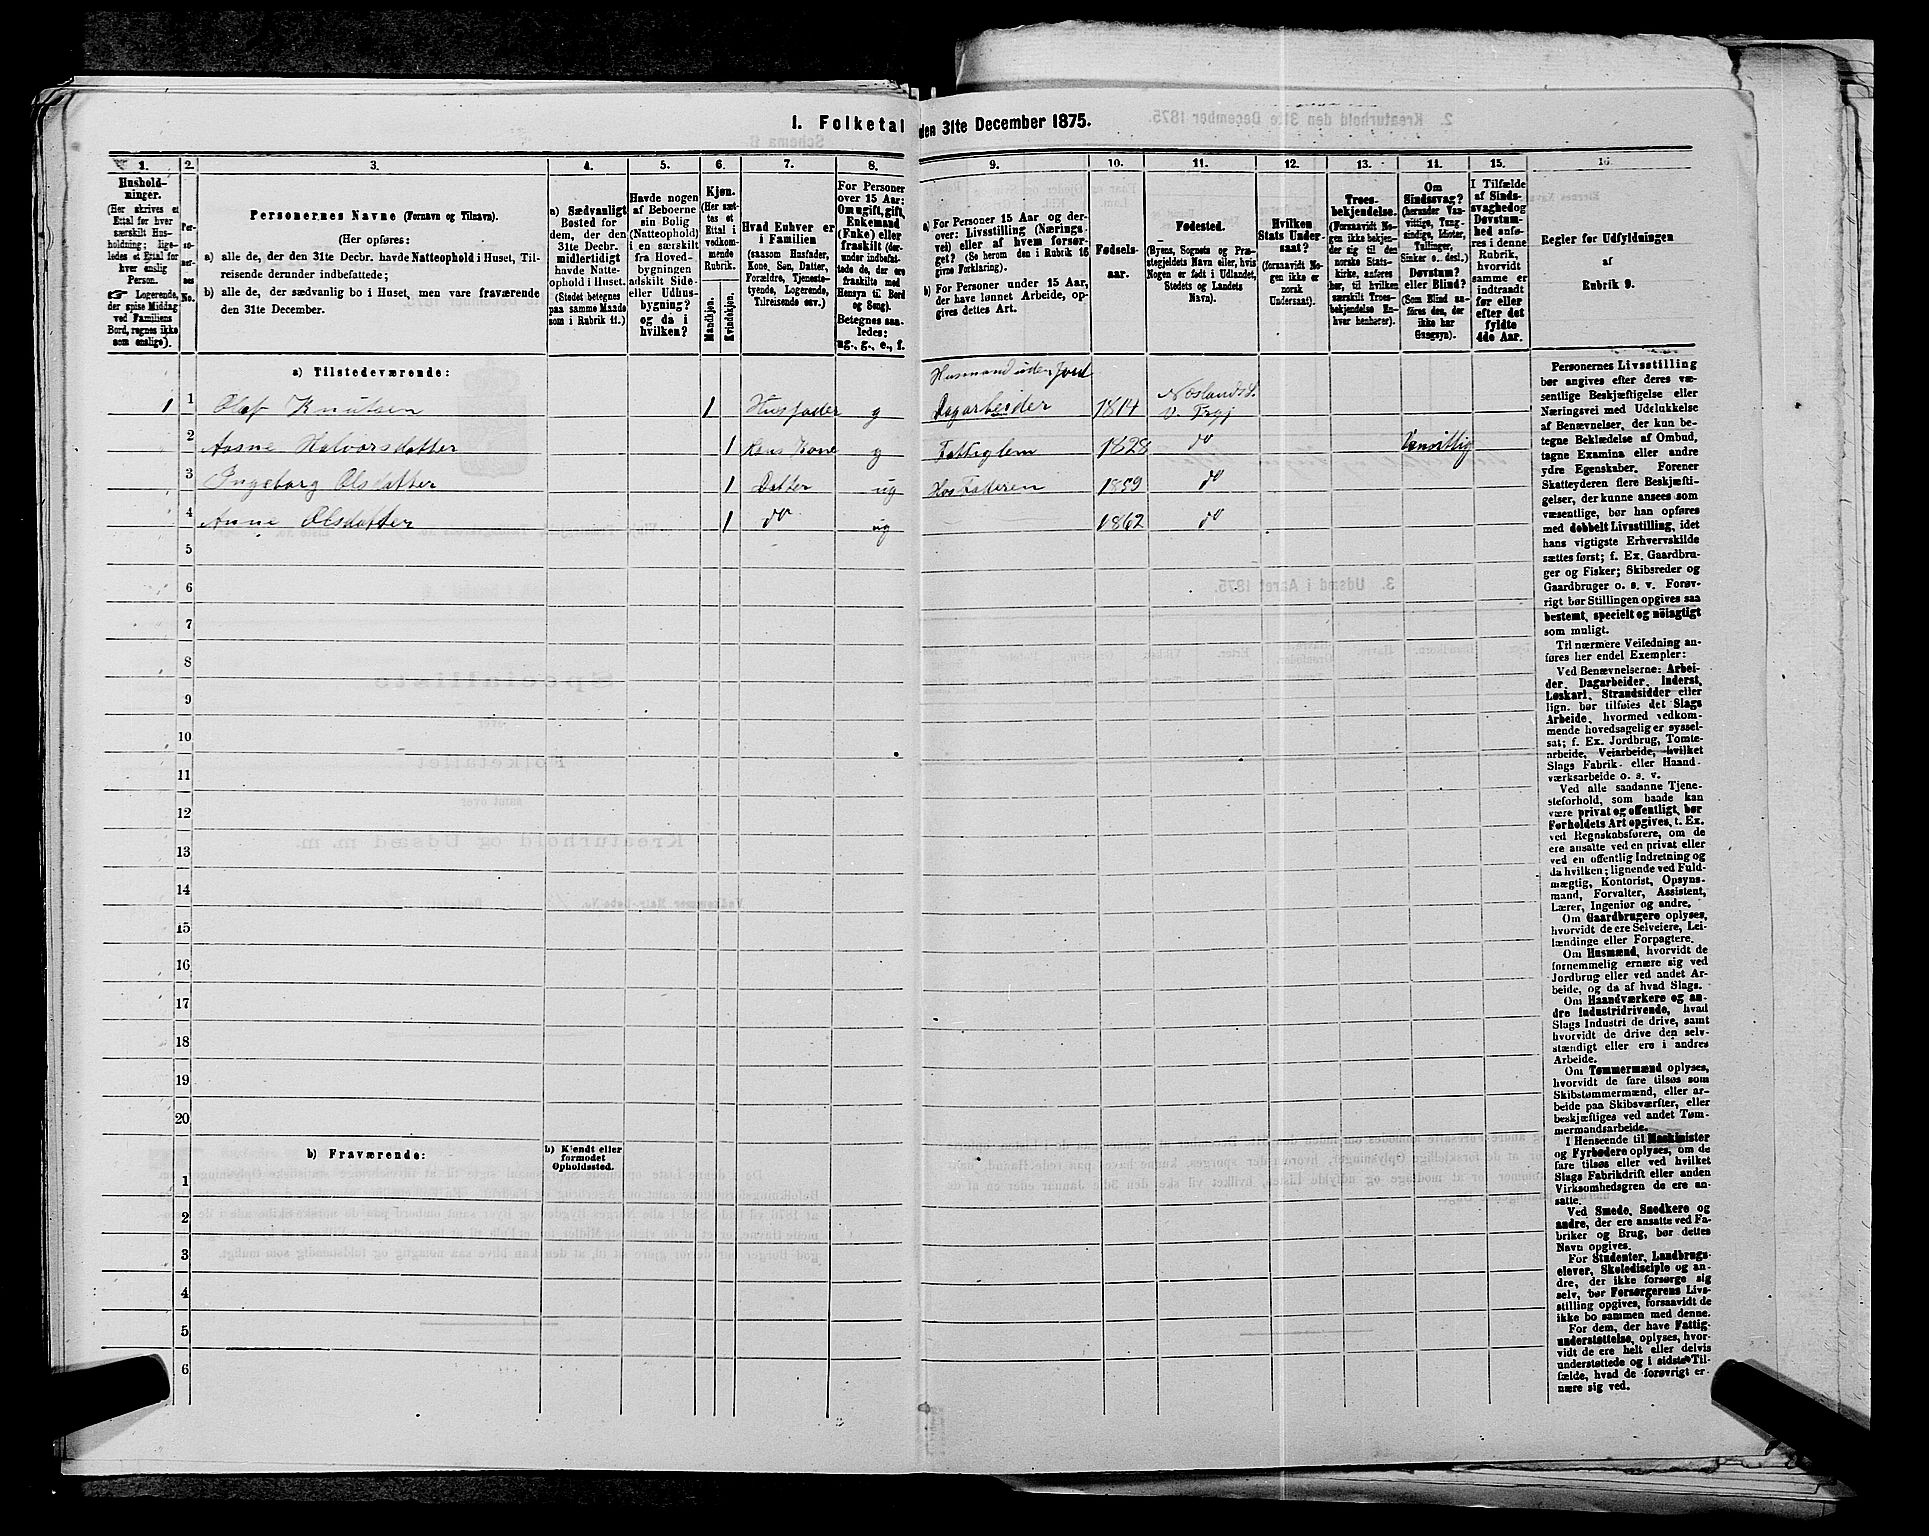 I. Folketal den 31te December 1875.
1. 2. 3. 4. 5. 6. 7. 8. 9. 10. 11. 12. 13. 14. 15. 16
Hushold-
ninger.
(Her skrives et
Ettal for hver
særskilt Hus-
holdning; lige-
ledes et Ettal for
hver enslig
Person.
☞ Logerende,
der spise Middag
ved Familiens
Bord, regnes ikke
som enslige).
Per-
so-
ner-
nes
No.
Personernes Navne (Fornavn og Tilnavn).
(Her opføres:
a) alle de, der den 31te Decbr. havde Natteophold i Huset, Til-
reisende derunder indbefattede;
b) alle de, der sædvanlig bo i Huset, men vare fraværende
den 31te December.
a) Sædvanligt
Bosted for
dem, der den
31te Decbr.
midlertidigt
havde Natte-
ophold i Huset.
(Stedet betegnes
paa samme Maade
som i Rubrik 11.)
Havde nogen
af Beboerne
sin Bolig
(Natteophold)
i en særskilt
fra Hoved-
bygningen
adskilt Side-
eller Udhus-
bygning?
og da i
hvilken?
Kjøn.
(Her sæt-
tes et
Ettal i
vedkom-
mende
Rubrik.
Mandkjøn.
Kvindekjøn.
Hvad Enhver er
i Familien
(saasom Husfader,
Kone, Søn, Datter,
Forældre, Tjeneste-
tyende, Logerende,
Tilreisende osv.)
For Personer
over 15 Aar:
Om ugift, gift,
Enkemand
(Enke) eller
fraskilt (der-
under indbefat-
tede de, der ere
fraskilte med
Hensyn til Bord
og Seng).
Betegnes saa-
ledes:
ug., g., e., f.
a) For Personer 15 Aar og der-
over: Livsstilling (Nærings-
vei) eller af hvem forsør-
get? (Se herom den i Rubrik 16
givne Forklaring).
b) For Personer under 15 Aar,
der have lønnet Arbeide, op-
gives dettes Art.
Fødsels-
aar.
Fødested.
(Byens, Sognets og Præ-
stegjeldets Navn eller, hvis
Nogen er født i Udlandet,
Stedets og Landets
Navn).
Hvilken
Stats Under-
saat?
(forsaavidt No-
gen ikke er
norsk
Undersaat).
Troes-
bekjendelse.
(Forsaavidt No-
gen ikke bekjen-
der sig til den
norske Stats-
kirke, anføres
her, til hvilken
særskilt Troes-
bekjendelse En-
hver henhører).
Om
Sindssvag?
(herunder Van-
vittige, Tung-
sindige, Idioter,
Tullinger,
Sinker o. desl.)
Døvstum?
eller Blind?
(Som Blind an-
føres den, der
ikke har
Gangsyn).
I Tilfælde
af Sinds-
svaghed og
Døvstum-
hed anfø-
res i denne
Rubrik,
hvorvidt
samme er
indtraadt
før eller
efter det
fyldte
4de Aar.
Regler for Udfyldningen
af
Rubrik 9.
a) Tilstedeværende:
Husmand uden Jord
1 1 Olaf Knutsen 1 Husfader g Dagarbeider 1814 Næslands S. V. Prgj
2 Aasne Halvorsdatter 1 Hans Kone g Fattiglem 1828 do Vanvittig
3 Ingeborg Olsdatter 1 Datter ug Hos Faderen 1859 do
4 Anne Olsdatter 1 do ug 1862 do
5
6
7
8
9
10
11
12
13
14
15
16
17
18
19
20
b) Fraværende:
b) Kjendt eller
formodet
Opholdssted.
1
2
3
4
5
6
Personernes Livsstilling
bør angives efter deres væ-
sentlige Beskjæftigelse eller
Næringsvei med Udelukkelse
af Benævnelser, der kun be-
tegne Beklædelse af Ombud,
tagne Examina eller andre
ydre Egenskaber. Forener
Skatteyderen flere Beskjæfti-
gelser, der kunne ansees som
væsentlige, bør han opføres
med dobbelt Livsstilling, idet
hans vigtigste Erhvervskilde
sættes først; f. Ex. Gaardbru-
ger og Fisker; Skibsreder og
Gaardbruger o. s. v. Forøv-
rigt bør Stillingen opgives saa
bestemt, specielt og nöiagtigt
som muligt.
Til nærmere Veiledning an-
føres her endel Exempler:
Ved Benævnelserne: Arbei-
der, Dagarbeider, Inderst,
Løskarl, Strandsidder eller
lign. bør tilføies det Slags
Arbeide, hvormed vedkom-
mende hovedsagelig er syssel-
sat; f. Ex. Jordbrug, Tomte-
arbeide, Veiarbeide, hvilket
Slags Fabrik- eller Haand-
værksarbeide o. s. v.
Ved alle saadanne Tjene-
steforhold, som baade kan
være privat og offentligt, bør
Forholdets Art opgives, t. Ex.
ved Regnskabsførere, om de
ere ansatte ved en privat eller
ved en offentlig Indretning og
da hvilken; lignende ved Fuld-
mægtig, Kontorist, Opsyns-
mand, Forvalter, Assistent,
Lærer, Ingeniør og andre.
Om Gaardbrugere oplyses,
hvorvidt de ere Selveiere, Lei-
lændinge eller Forpagtere.
Om Husmænd, hvorvidt de
fornemmelig ernære sig ved
Jordbrug eller ved andet Ar-
beide, og da af hvad Slags.
Om Haandværkere og an-
dre Industridrivende, hvad
Slags Industri de drive, samt
hvorvidt de drive den selv-
stændigt eller ere i andres
Arbeide.
Om Tømmermænd oplyses,
hvorvidt de fare tilsøs som
Skibstømmermænd, eller ar-
beide paa Skibsværfter, eller
beskjæftiges ved andet Tøm-
mermandsarbeide.
I Henseende til Maskinister
og Fyrbødere oplyses, om de
fare tilsøs eller ved hvilket
Slags Fabrikdrift eller anden
Virksomhedsgren de ere an-
satte.
Ved Smede, Snedkere og
andre, der ere ansatte ved Fa-
briker og Brug, bør dettes
Navn opgives.
For Studenter, Landbrugs-
elever, Skoledisciple og an-
dre, der ikke forsørge sig
selv, bør Forsørgerens Livs-
stilling opgives, forsaavidt de
ikke bo sammen med denne.
For dem, der have Fattig-
understøttelse, oplyses, hvor-
vidt de ere helt eller delvis
understøttede og i sidste Til-
fælde, hvad de forøvrigt er-
nære sig ved.